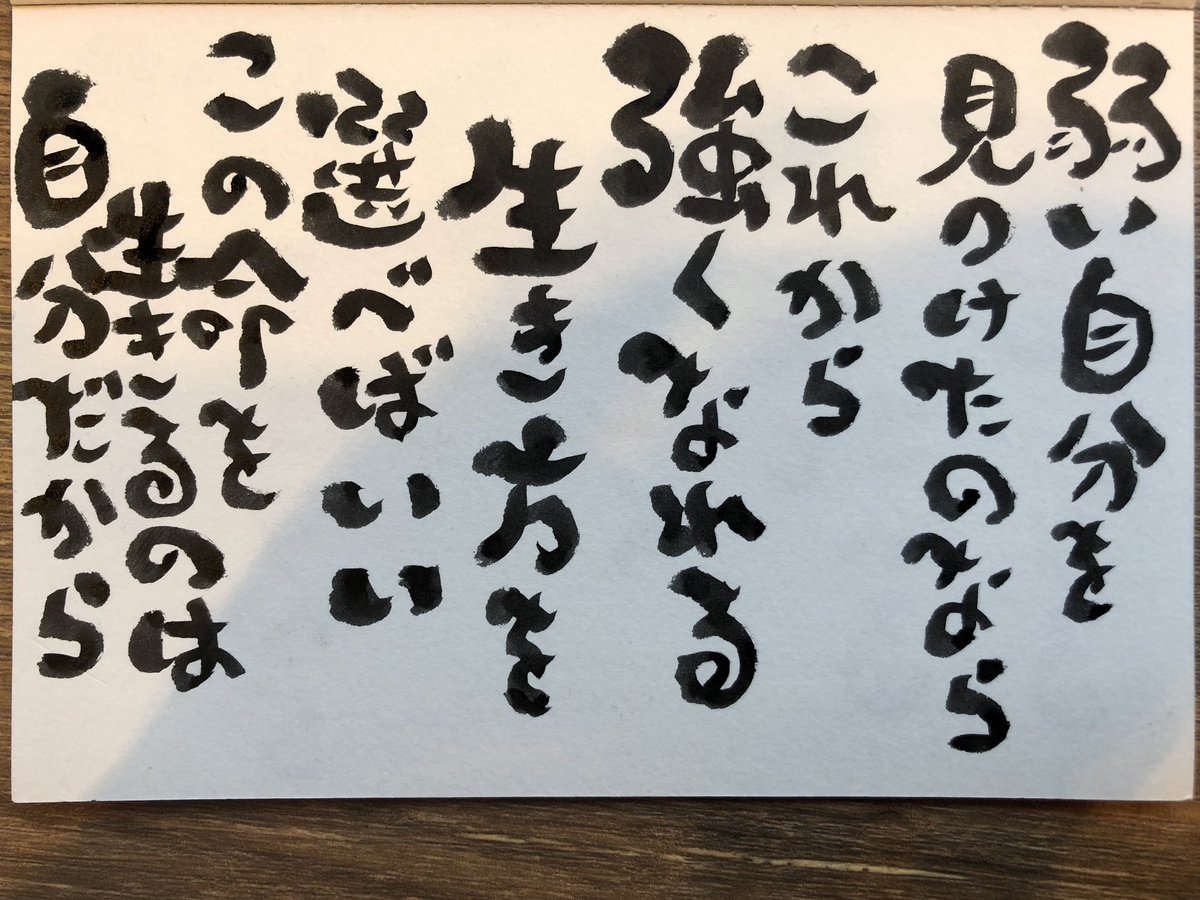 弱い自分を
見つけたのなら
これから
強くなれる
生き方を
選べばいい
この命を
生きるのは
自分だから